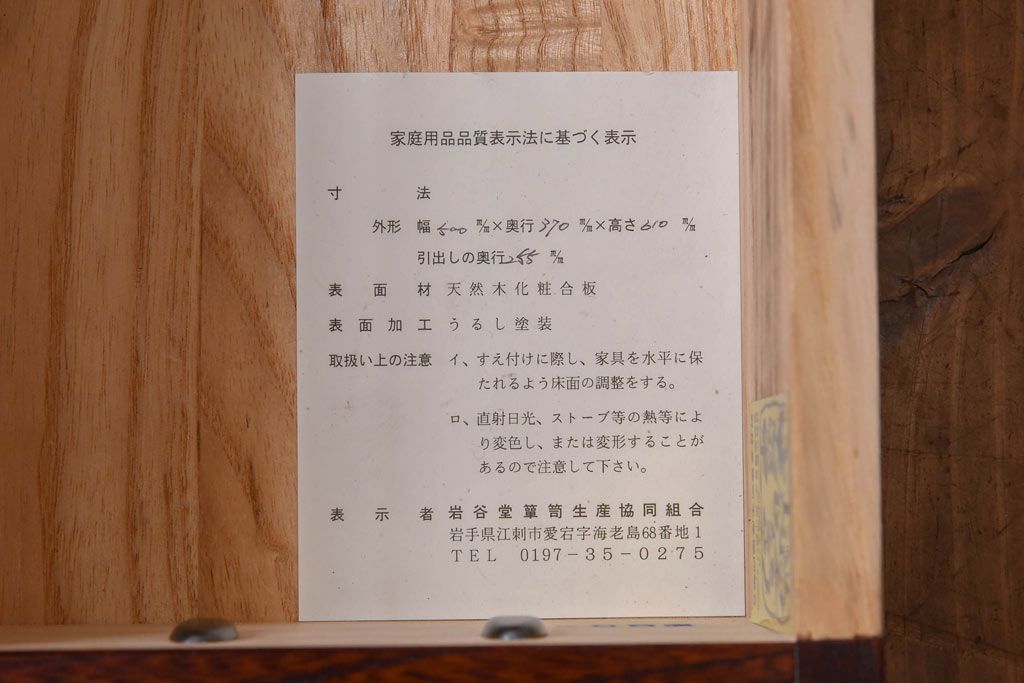 家庭用品品質表示法に基づく表示
寸法
外形 幅 500 m/m×奥行 370 m/m×高さ 610 m/m
引出しの奥行 255 m/m
表面材 天然木化粧合板
表面加工 うるし塗装
取扱い上の注意 イ、すえ付けに際し、家具を水平に保
たれるよう床面の調整をする。
ロ、直射日光、ストーブ等の熱等によ
り変色し、または変形することが
あるので注意して下さい。
表示者 岩谷堂簞笥生産協同組合
岩手県江刺市愛宕字海老島68番地1
TEL 0197−35−0275